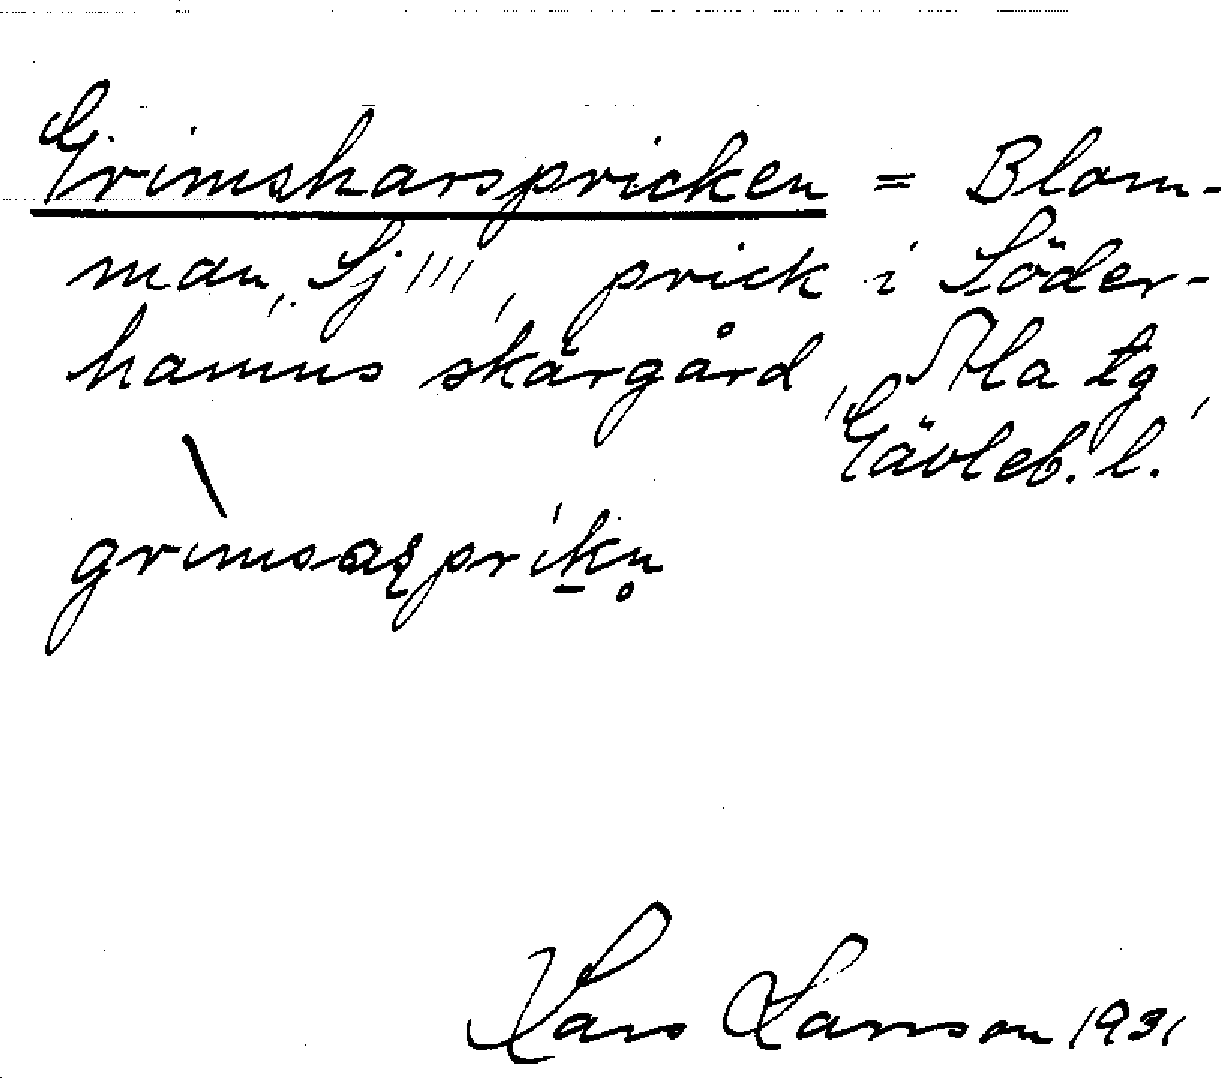 Grimsharspricken = Blom-
man, Sj 111, prick i Söder-
hamns skärgård, Ala tg,
Gävleb. l.
grimsaspríkn̥
Lars Larsson 1931